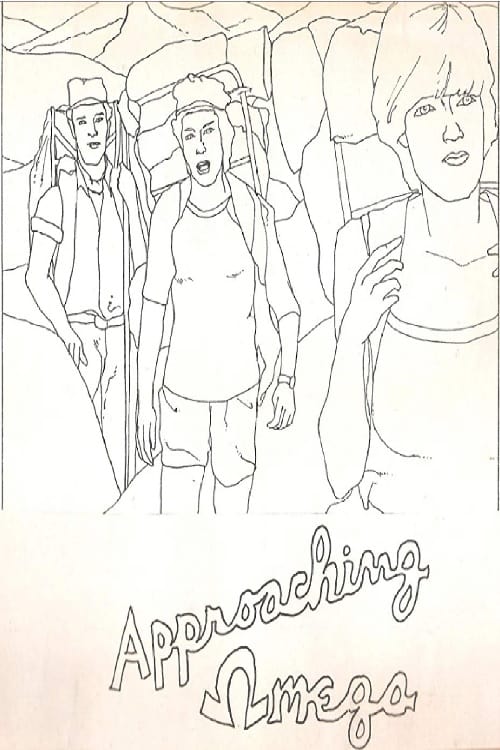 Approaching
Ωmega